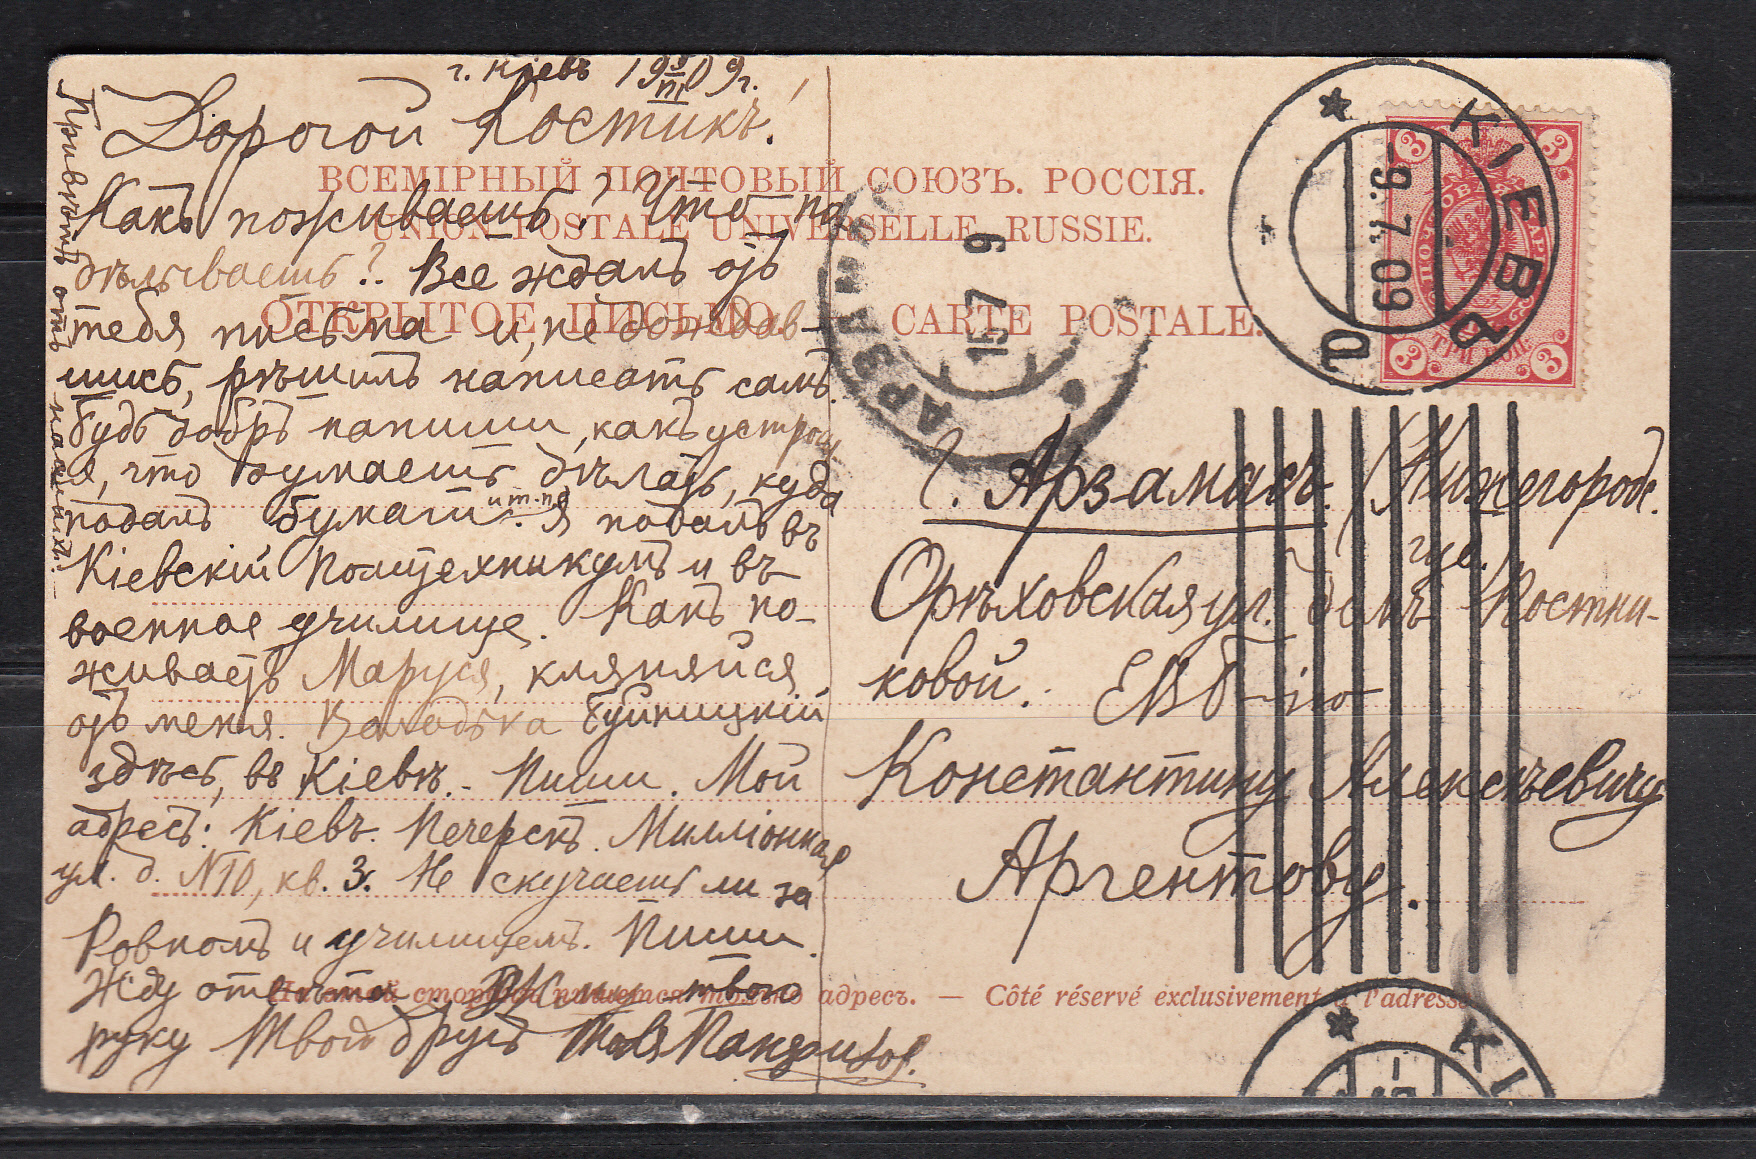 г. Кіевъ 19 9/VII 09 г.
Дорогой Костикъ!
Какъ поживаешь? Что по
дѣлываешь? Все ждалъ отъ
тебя письма и, не дождав-
шись, рѣшилъ написать самъ.
Будь добръ напиши, какъ устроил
я, что думаешь дѣлать, куда
подалъ бумаги и т. п. Я подалъ въ
Кіевскій Политехникумъ и въ
военное училище. Какъ по-
живаетъ Маруся, кланяйся
отъ меня. Володька
здѣсь, въ Кіевѣ. - Пиши. Мой
адресъ: Кіевъ. Печерскъ. Милліонная
ул. д. №10, кв. 3. Не скучаешь ли за
Ровномъ и училищемъ. Пиши.
Жду отвѣта. Жму твою
руку Твой другъ
Привѣтъ отъ нашихъ.
ВСЕМІРНЫЙ ПОЧТОВЫЙ СОЮЗЪ. РОССІЯ.
UNION POSTALE UNIVERSELLE RUSSIE.
ОТКРЫТОЕ ПИСЬМО. CARTE POSTALE.
КІЕВЪ
-9.7.09
АРЗАМАС
15 7 9
3 3
ТРИ КОП.
3 3
г. Арзамасъ (Нижегородс.
губ.
Орѣховская ул. домъ Постни-
ковой. ЕВБ-ію
Константину Алексѣевичу
Аргентову.
На этой сторонѣ пишется только адресъ. — Côté réservé exclusivement à l'adresse
КІ